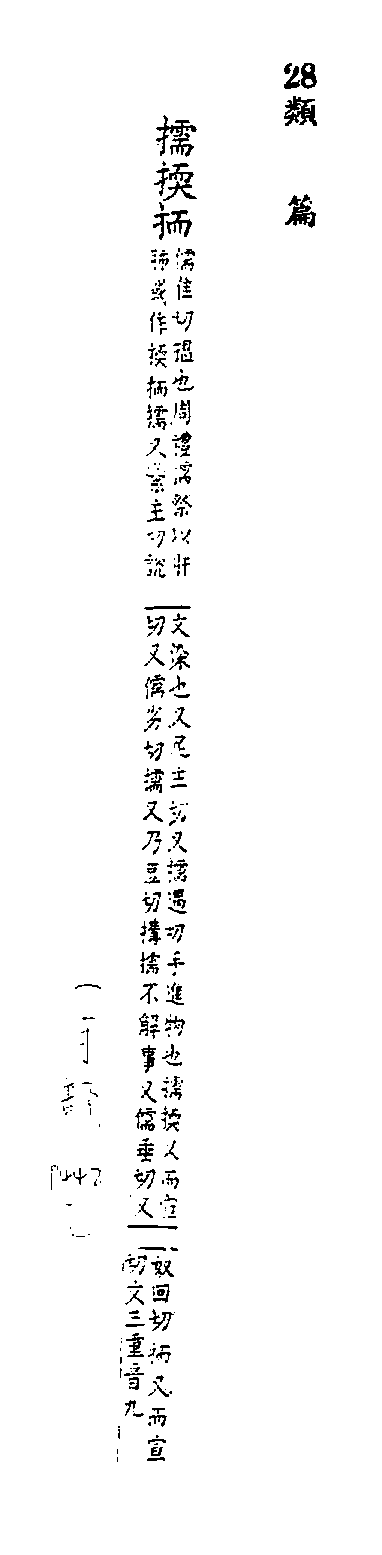 28
類篇
擩㨎抐
儒隹切搵也周禮擩祭以肝
肺或作㨎抐擩又蘂主切說
文染也又尼主切又擩遇切手進物也擩㨎又而宣
切又儒劣切擩又乃豆切搆擩不解事又儒垂切又
奴回切抐又而宣
切文三重音九